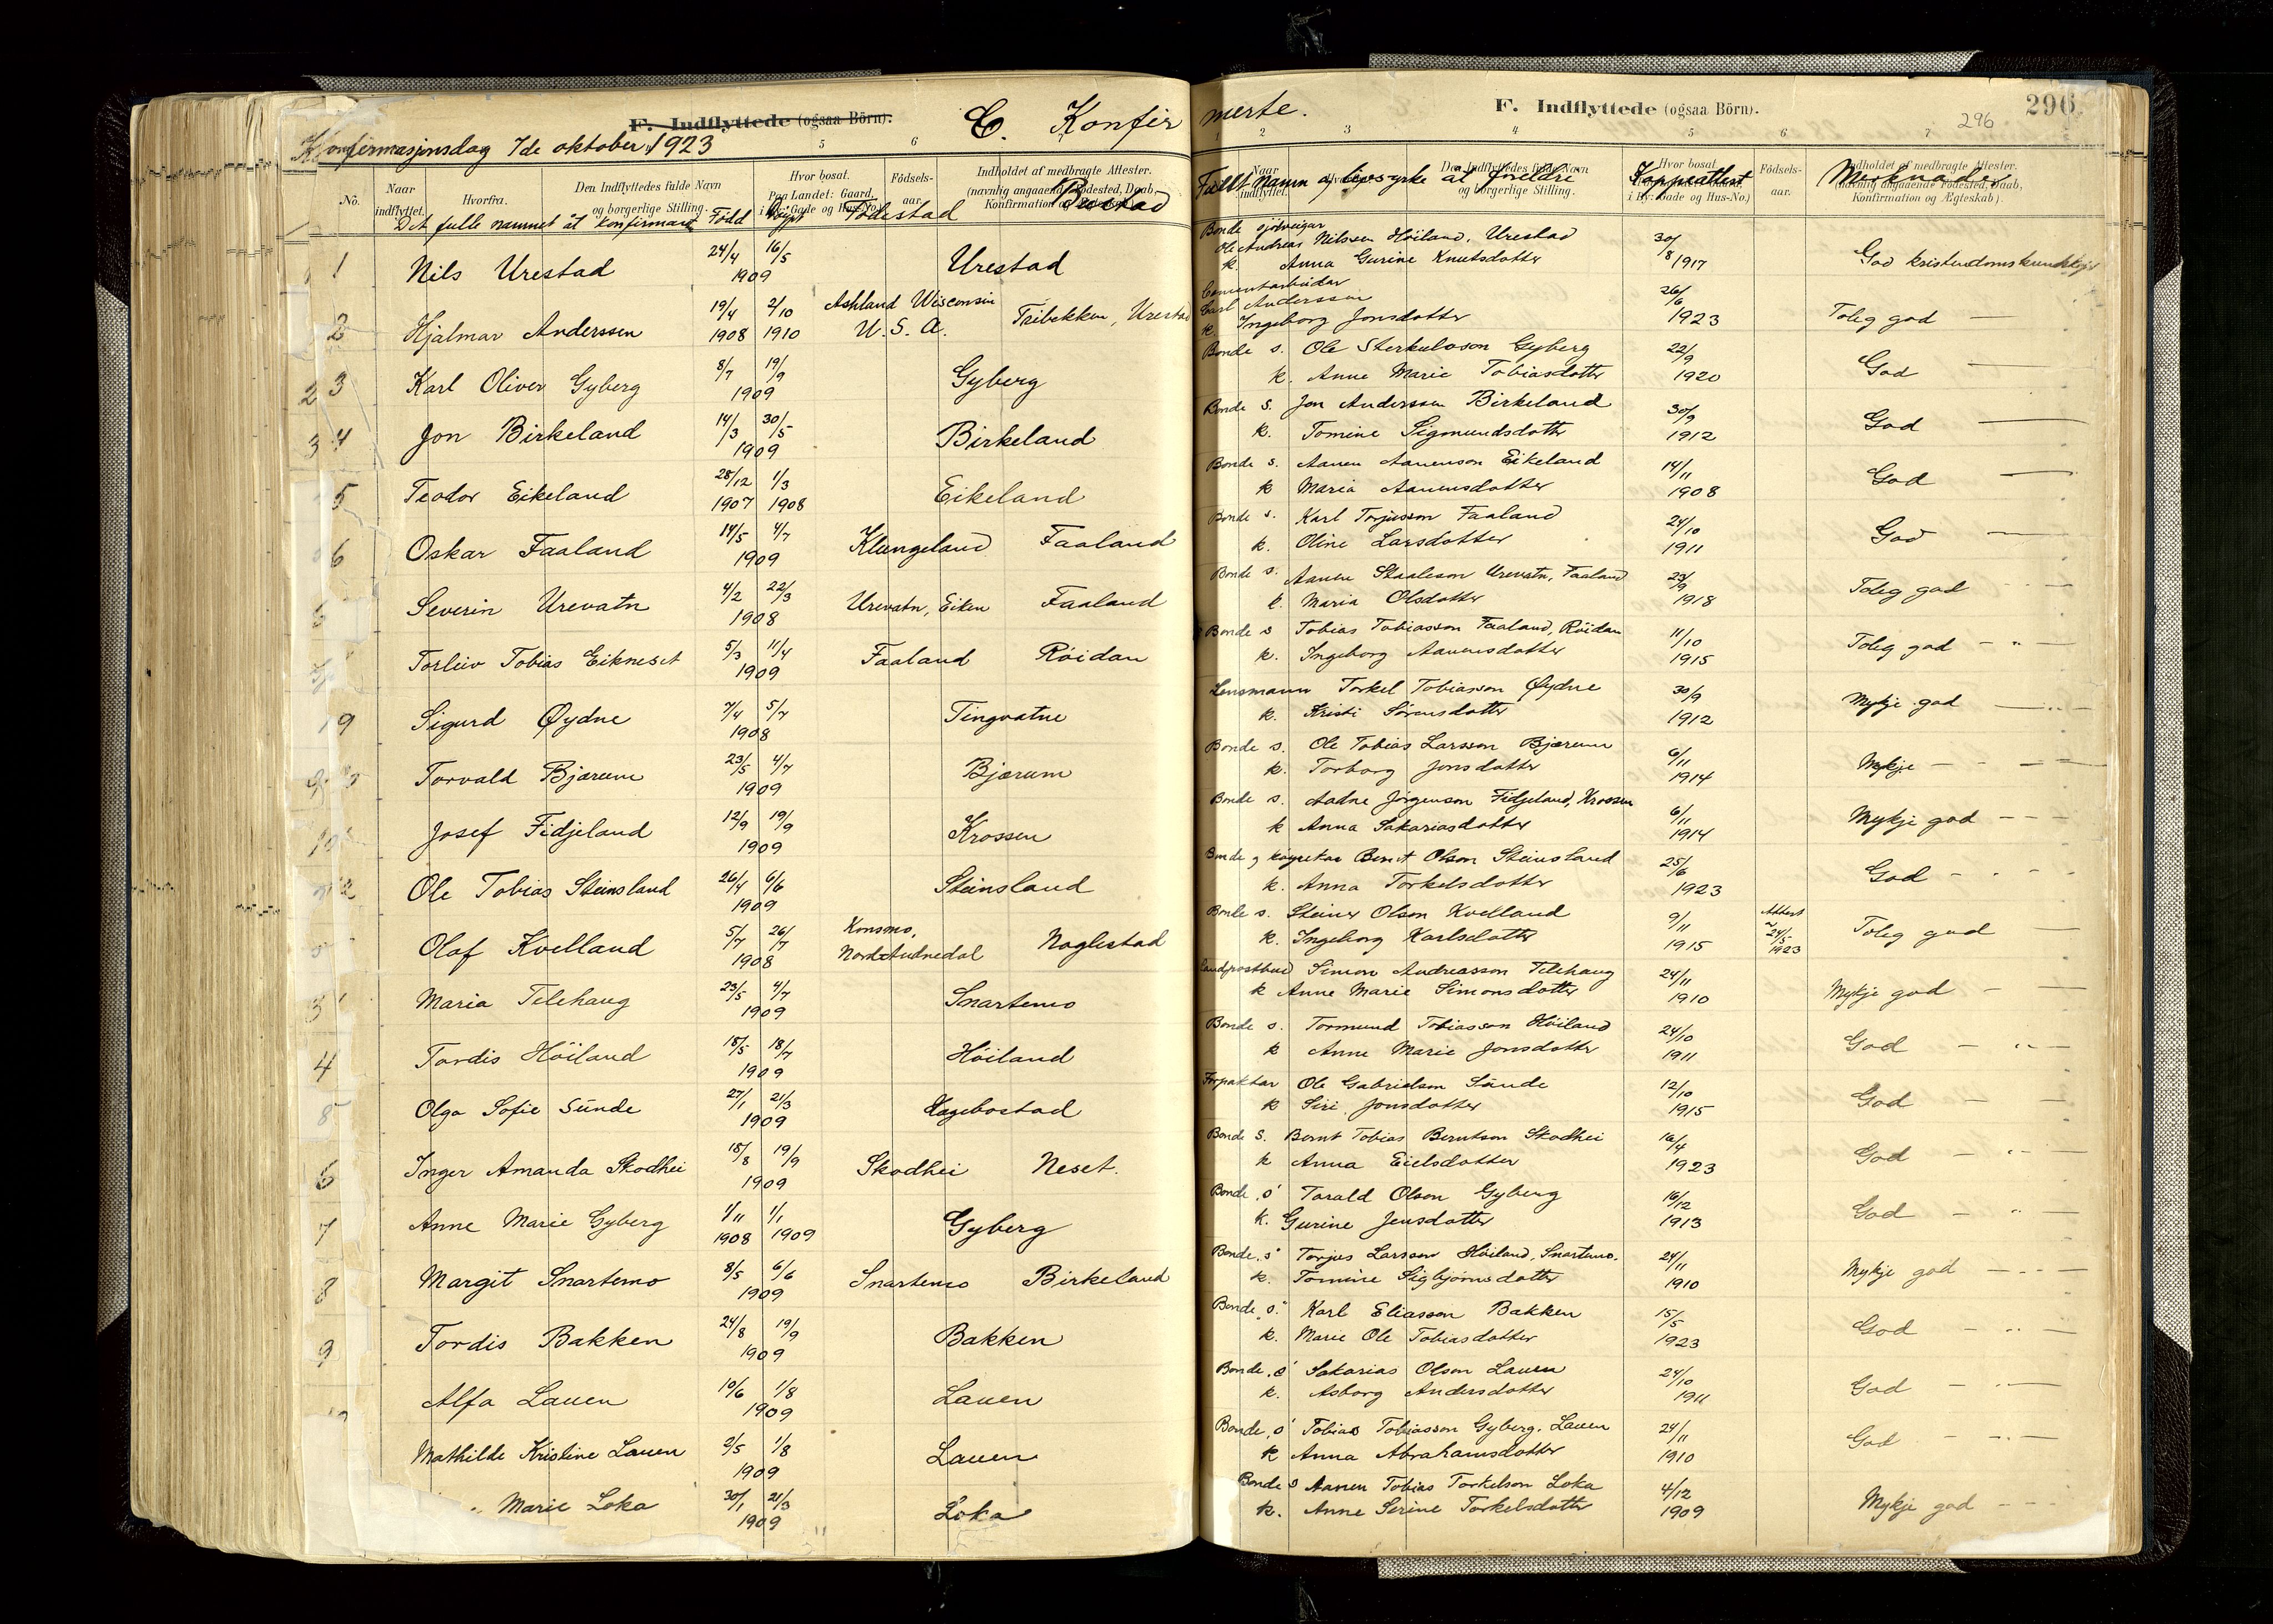 F. Indflyttede (ogsaa Börn).
C. Konfirmerte.
F. Indflyttede (ogsaa Börn).
296
296
Konfirmasjonsdag 7de oktober 1923
5 6
1 2 3 4 5 6 7
No.
Naar indflyttet.
Hvorfra.
Den Indflyttedes fulde Navn og borgerlige Stilling.
Hvor bosat.
Födsels-aar.
Indholdet af medbragte Attester.
(navnlig angaaende Födested, Daab, Konfirmation og Ægteskab).
Det fulle namnet åt konfirmant Fødd Döypt Födestad Bustad
Fullt namn og livsyrke åt foreldre Koppeattest Merknader
1 Nils Urestad 24/4 16/5 1909 Urestad
Bonde sjølveigar
Ole Andreas Nilssen Höiland, Urestad 30/8 1917 God kristendomskunnskap
k. Anna Gurine Knutsdotter
2 Hjalmar Anderssen 19/4 1908 2/10 1910 Ashland Wisconsin U. S. A. Tribekken, Urestad
Cementarbeidar
Carl Anderssen 26/6 1923 Toleg god
k. Ingeborg Jonsdotter
3 Karl Oliver Gyberg 8/7 19/9 1909 Gyberg
Bonde s. Ole Sterkulvson Gyberg 22/9 1920 God
k. Anne Marie Tobiasdotter
4 Jon Birkeland 14/3 30/5 1909 Birkeland
Bonde s. Jon Anderssen Birkeland 30/9 1912 God
k. Tomine Sigmundsdotter
5 Teodor Eikeland 28/12 1907 1/3 1908 Eikeland
Bonde s. Aanen Aanenson Eikeland 14/11 1908 God
k Maria Aanensdotter
6 Oskar Faaland 14/5 4/7 1909 Klungeland Faaland
Bonde s. Karl Torjusson Faaland 24/10 1911 God
k. Oline Larsdotter
Severin Urevatn 4/2 22/3 1908 Urevatn, Eiken Faaland
Bonde s. Aanen Staaleson Urevatn, Faaland 23/9 1918 Toleg god
k. Maria Olsdotter
Torleiv Tobias Eikneset 5/3 11/4 1909 Faaland Röidan
Bonde s Tobias Tobiasson Faaland, Röidan 11/10 1915 Toleg god
k. Ingeborg Aanensdotter
9 Sigurd Øydne 7/4 5/7 1908 Tingvatne
Lensmann Torkel Tobiasson Øydne 30/9 1912 Mykje god
k. Kristi Sörensdotter
Torvald Bjærum 23/5 4/7 1909 Bjærum
Bonde s. Ole Tobias Larsson Bjærum 6/11 1914 Mykje
k. Torborg Jonsdotter
Josef Fidjeland 12/9 19/9 1909 Krossen
Bonde s. Aadne Jörgenson Fidjeland, Krossen 6/11 1914 Mykje god
k Anna Sakariasdotter
Ole Tobias Steinsland 26/4 6/6 1909 Steinsland
Bonde og köyrekar Bernt Olson Steinsland 25/6 1923 God
k. Anna Torkelsdotter
Olaf Kvelland 5/7 26/7 1908 Konsmo, Nord-Audnedal Noglestad
Bonde s. Steiner Olson Kvelland 9/11 1915 Attest 24/5 1923 Toleg god
k. Ingeborg Karlsdotter
Maria Telehaug 23/5 4/7 1909 Snartemo
Landpostbud Simon Andreasson Telehaug 24/11 1910 Mykje god
k Anne Marie Simonsdotter
4 Tordis Höiland 15/5 18/7 1909 Höiland
Bonde s. Tormund Tobiasson Höiland 24/10 1911 God
k Anne Marie Jonsdotter
Olga Sofie Sunde 27/1 21/3 1909 Hægebostad
Forpaktar Ole Gabrielson Sunde 12/10 1915 God
k Siri Jonsdotter
6 Inger Amanda Skodhei 15/8 19/9 1909 Skodhei Neset.
Bonde S. Bernt Tobias Berntson Skodhei 16/4 1923 God
k Anna Eielsdotter
7 Anne Marie Gyberg 1/11 1908 1/1 1909 Gyberg
Bonde, s Tarald Olson Gyberg 16/12 1913 God
k. Gurine Jensdotter
8 Margit Snartemo 8/5 6/6 1909 Snartemo Birkeland
Bonde, s. Torjus Larsson Höiland, Snartemo. 24/11 1910 Mykje god
k. Tomine Sigbjörnsdotter
9 Tordis Bakken 24/8 19/9 1909 Bakken
Bonde, s. Karl Eliasson Bakken 15/5 1923 God
k. Marie Ole Tobiasdotter
Alfa Lauen 10/6 1/8 1909 Lauen
Bonde, s Sakarias Olson Lauen 24/10 1911 God
k. Asborg Andersdotter
Mathilde Kristine Lauen 2/5 1/8 1909 Lauen
Bonde, s Tobias Tobiasson Gyberg, Lauen 24/11 1910 God
k Anna Abrahamsdotter
Marie Loka 30/1 21/3 1909 Loka
Bonde s Aanen Tobias Torkelson Loka 4/12 1909 Mykje god
k. Anne Serine Torkelsdotter